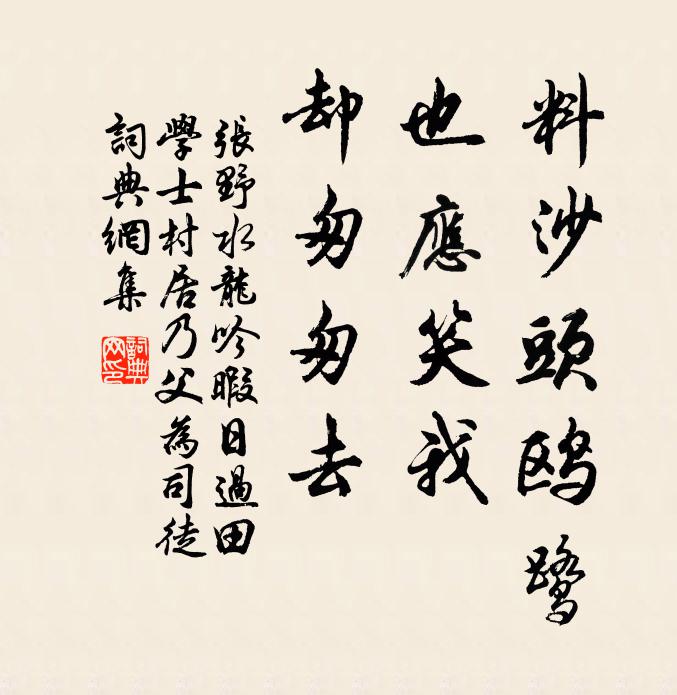 料沙頭鸥鹭
也應笑我
却匆匆去
張野水龍吟暇日過田
學士村居乃父為司徒
詞典網集
詞典
网印